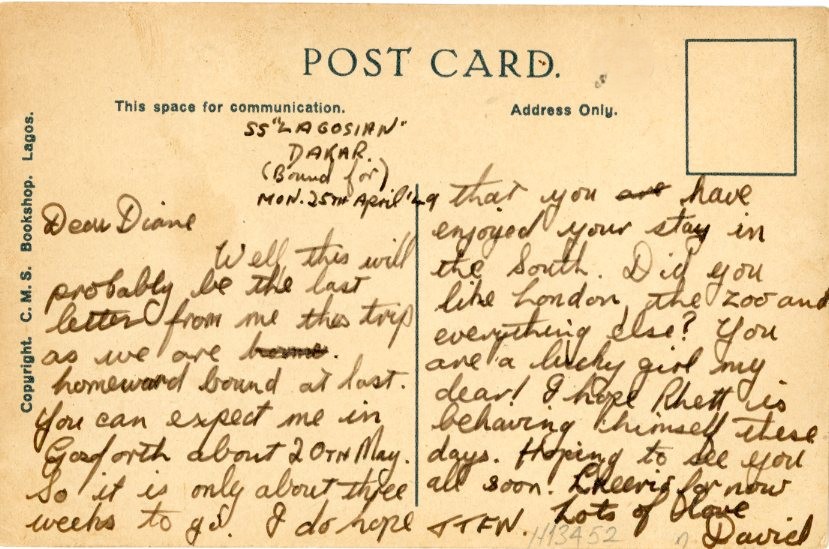 POST CARD.
This space for communication.
Address Only.
Copyright. C. M. S. Bookshop. Lagos.
SS "LAGOSIAN"
DAKAR.
(Bound for)
MON. 25TH April '49
Dear Diane
Well this will
probably be the last
letter from me this trip
as we are home.
homeward bound at last.
You can expect me in
Gosforth about 20TH May.
So it is only about three
weeks to go. I do hope
that you are have
enjoyed your stay in
the South. Did you
like London, the zoo and
everything else? You
are a lucky girl my
dear! I hope Rhett is
behaving himself these
days. Hoping to see you
all soon. Cheerio for now
TTFN. Lots of love
David
H13452